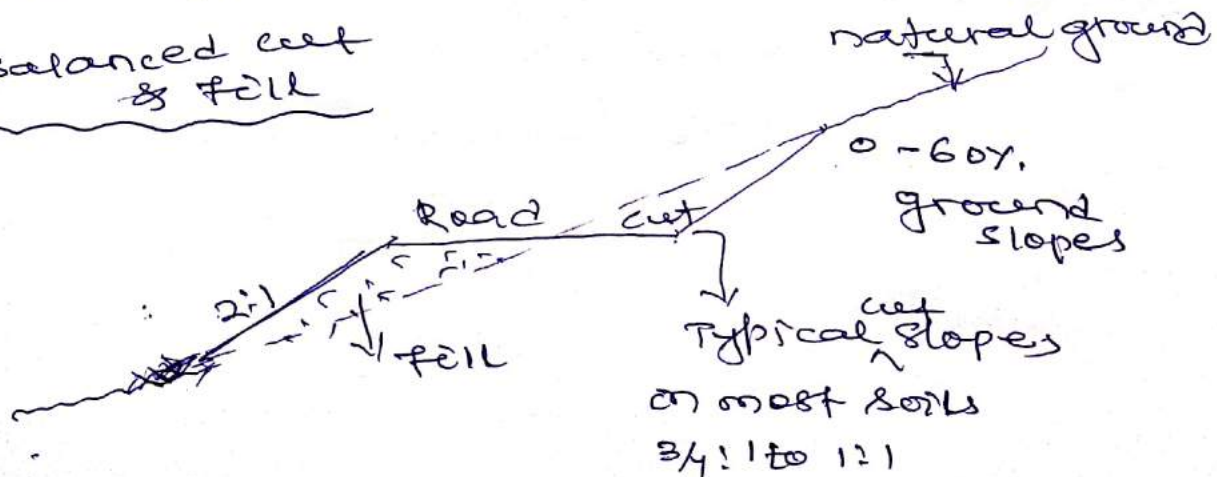 Balanced cut
& Fill
natural ground
0-60%.
ground
slopes
Road
cut
2:1
fill
Typical cut slopes
on most soils
3/4:1 to 1:1